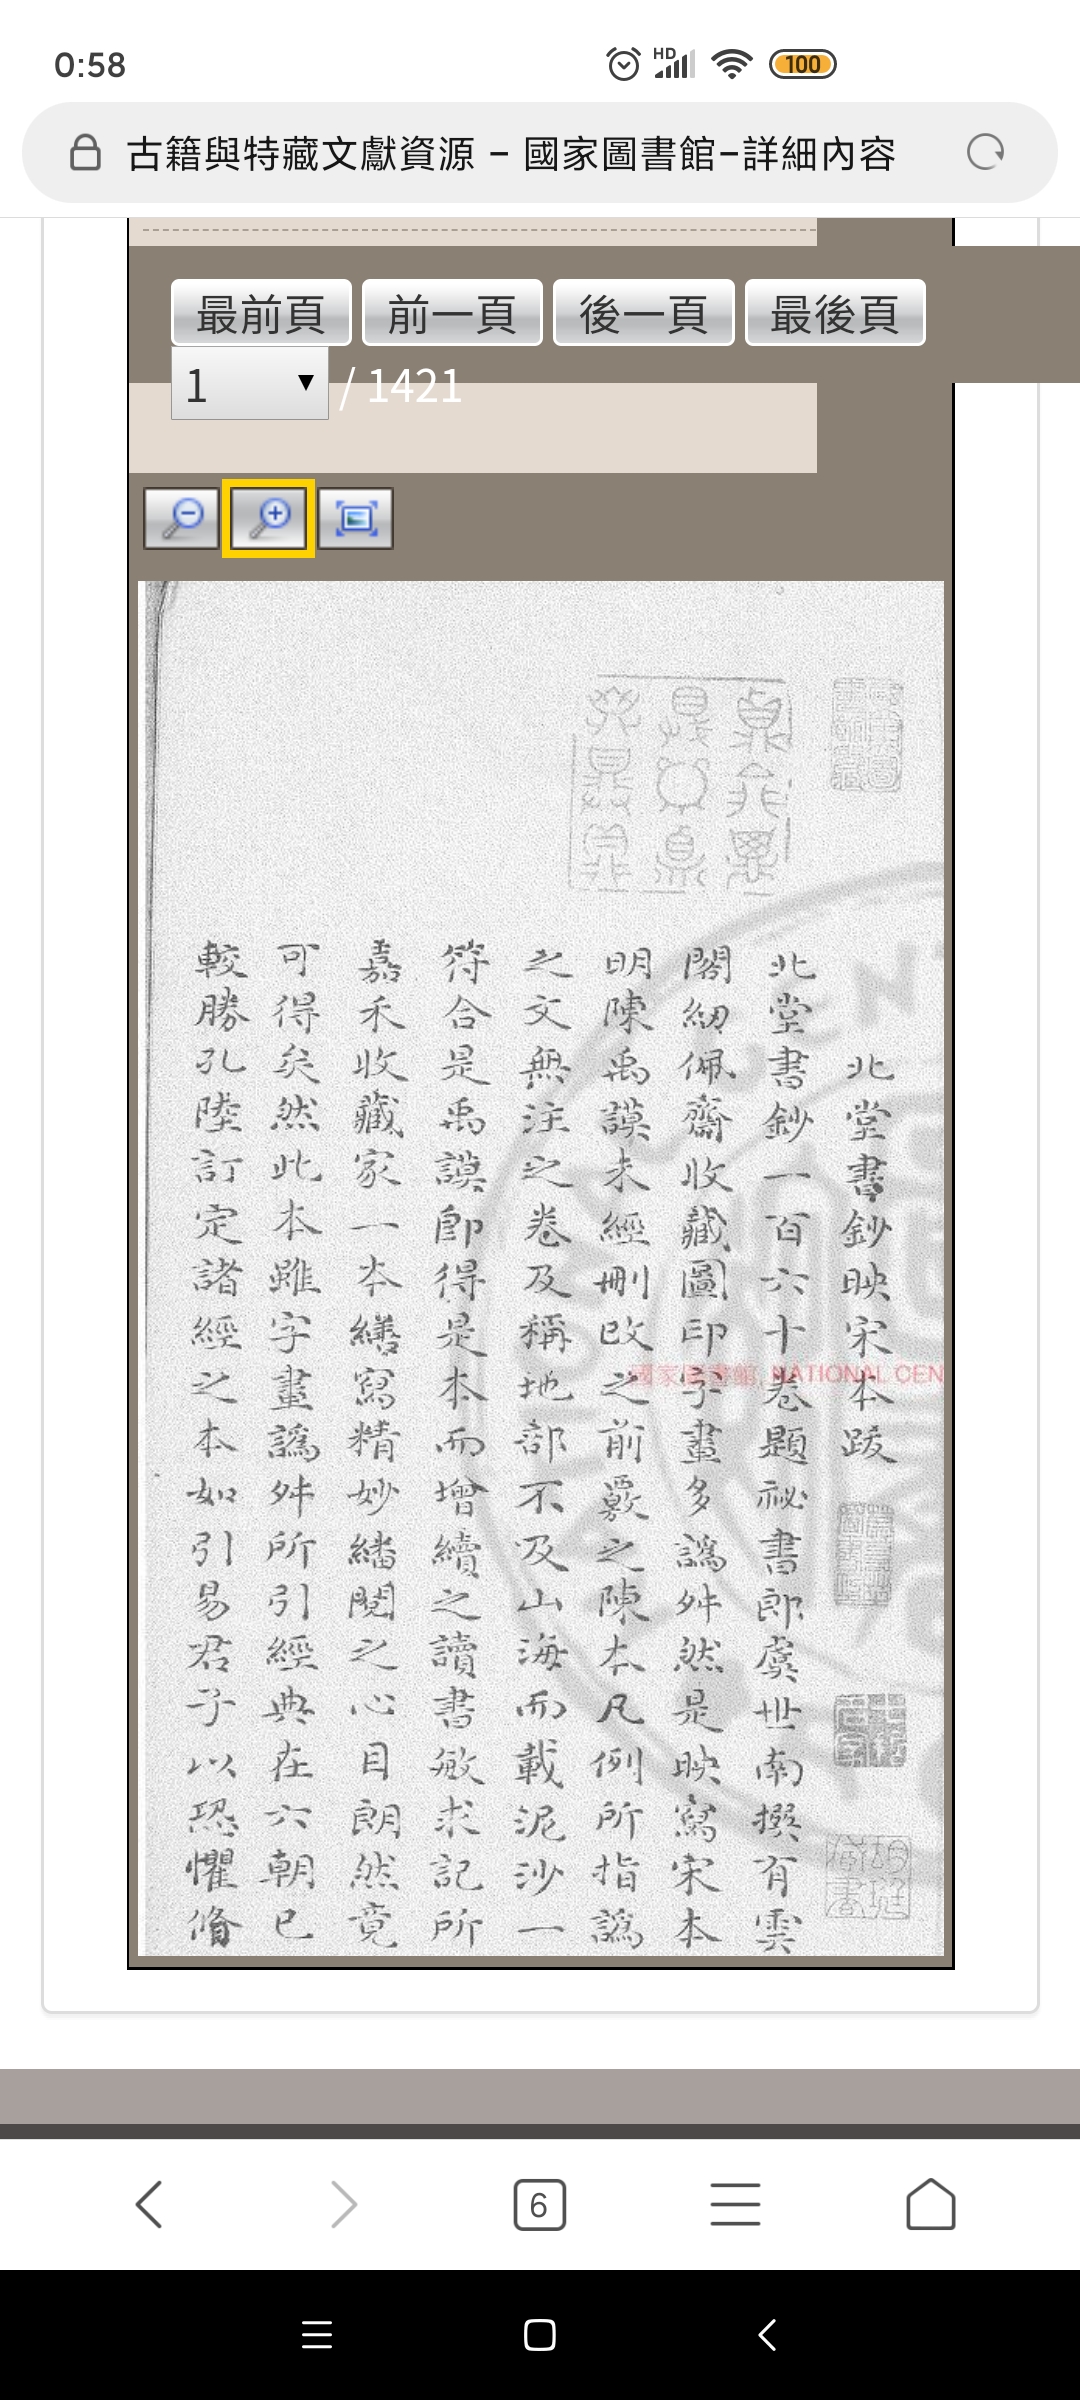 0:58
HD
100
古籍與特藏文獻資源 - 國家圖書館-詳細內容
最前頁 前一頁 後一頁 最後頁
1 / 1421
北堂書鈔映宋本跋
北堂書鈔一百六十卷題祕書郎虞世南撰有雲
閣紉佩齋收藏圖印字畫多譌舛然是映寫宋本
明陳禹謨未經刪改之前覈之陳本凡例所指譌
之文無注之卷及稱地部不及山海而載泥沙一
符合是禹謨卽得是本而增續之讀書敏求記所
嘉禾收藏家一本繕寫精妙繙閱之心目朗然竟
可得矣然此本雖字畫譌舛所引經典在六朝已
較勝孔陸訂定諸經之本如引易君子以恐懼脩
國家圖書館 NATIONAL CEN
6